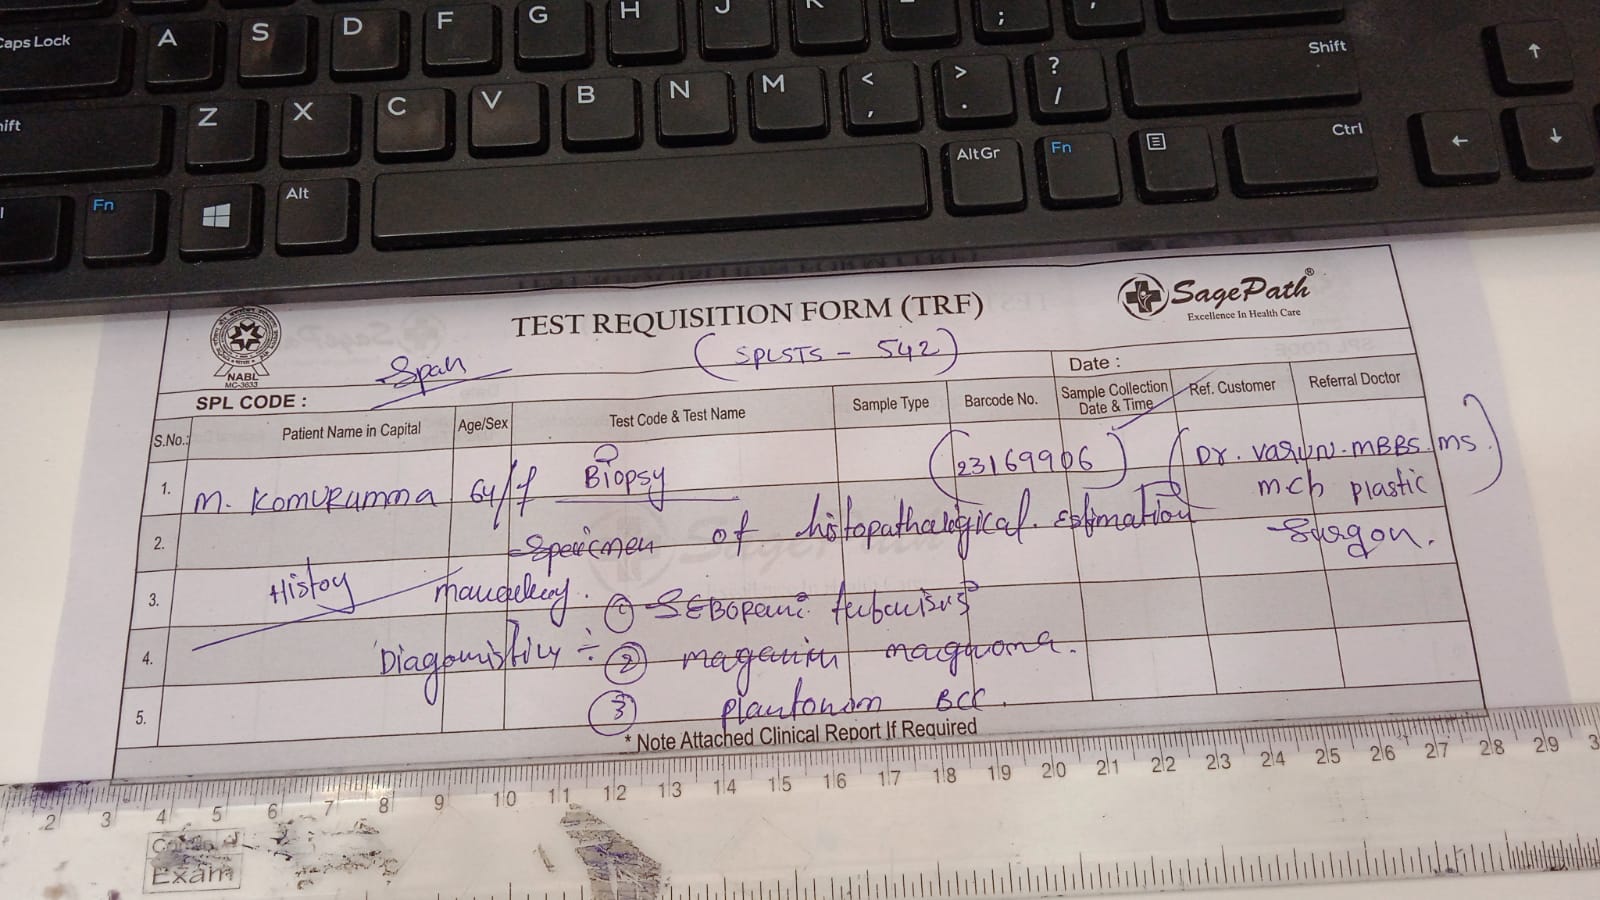 Caps Lock A S D F G H J K ;
Shift Z X C V B N M < , > . ? / Shift ↑
Fn Alt AltGr Fn Ctrl ← ↓
TEST REQUISITION FORM (TRF)
SagePath®
Excellence In Health Care
NABL
MC-3633
(SPLSTS - 542)
Date :
SPL CODE :
S.No.: Patient Name in Capital Age/Sex Test Code & Test Name Sample Type Barcode No. Sample Collection Date & Time Ref. Customer Referral Doctor
1. M. KOMURAMMA 64/f Biopsy (23169906) (Dr. varun. MBBS. MS.
mch plastic
Surgon.)
2. Specimen of histopathalogical. estimation
3. Histoy
① SEBORANI
4. ② maganim magnoma.
5. ③ plantonom BCC.
* Note Attached Clinical Report If Required
2 3 4 5 6 7 8 9 10 11 12 13 14 15 16 17 18 19 20 21 22 23 24 25 26 27 28 29 3
Exam